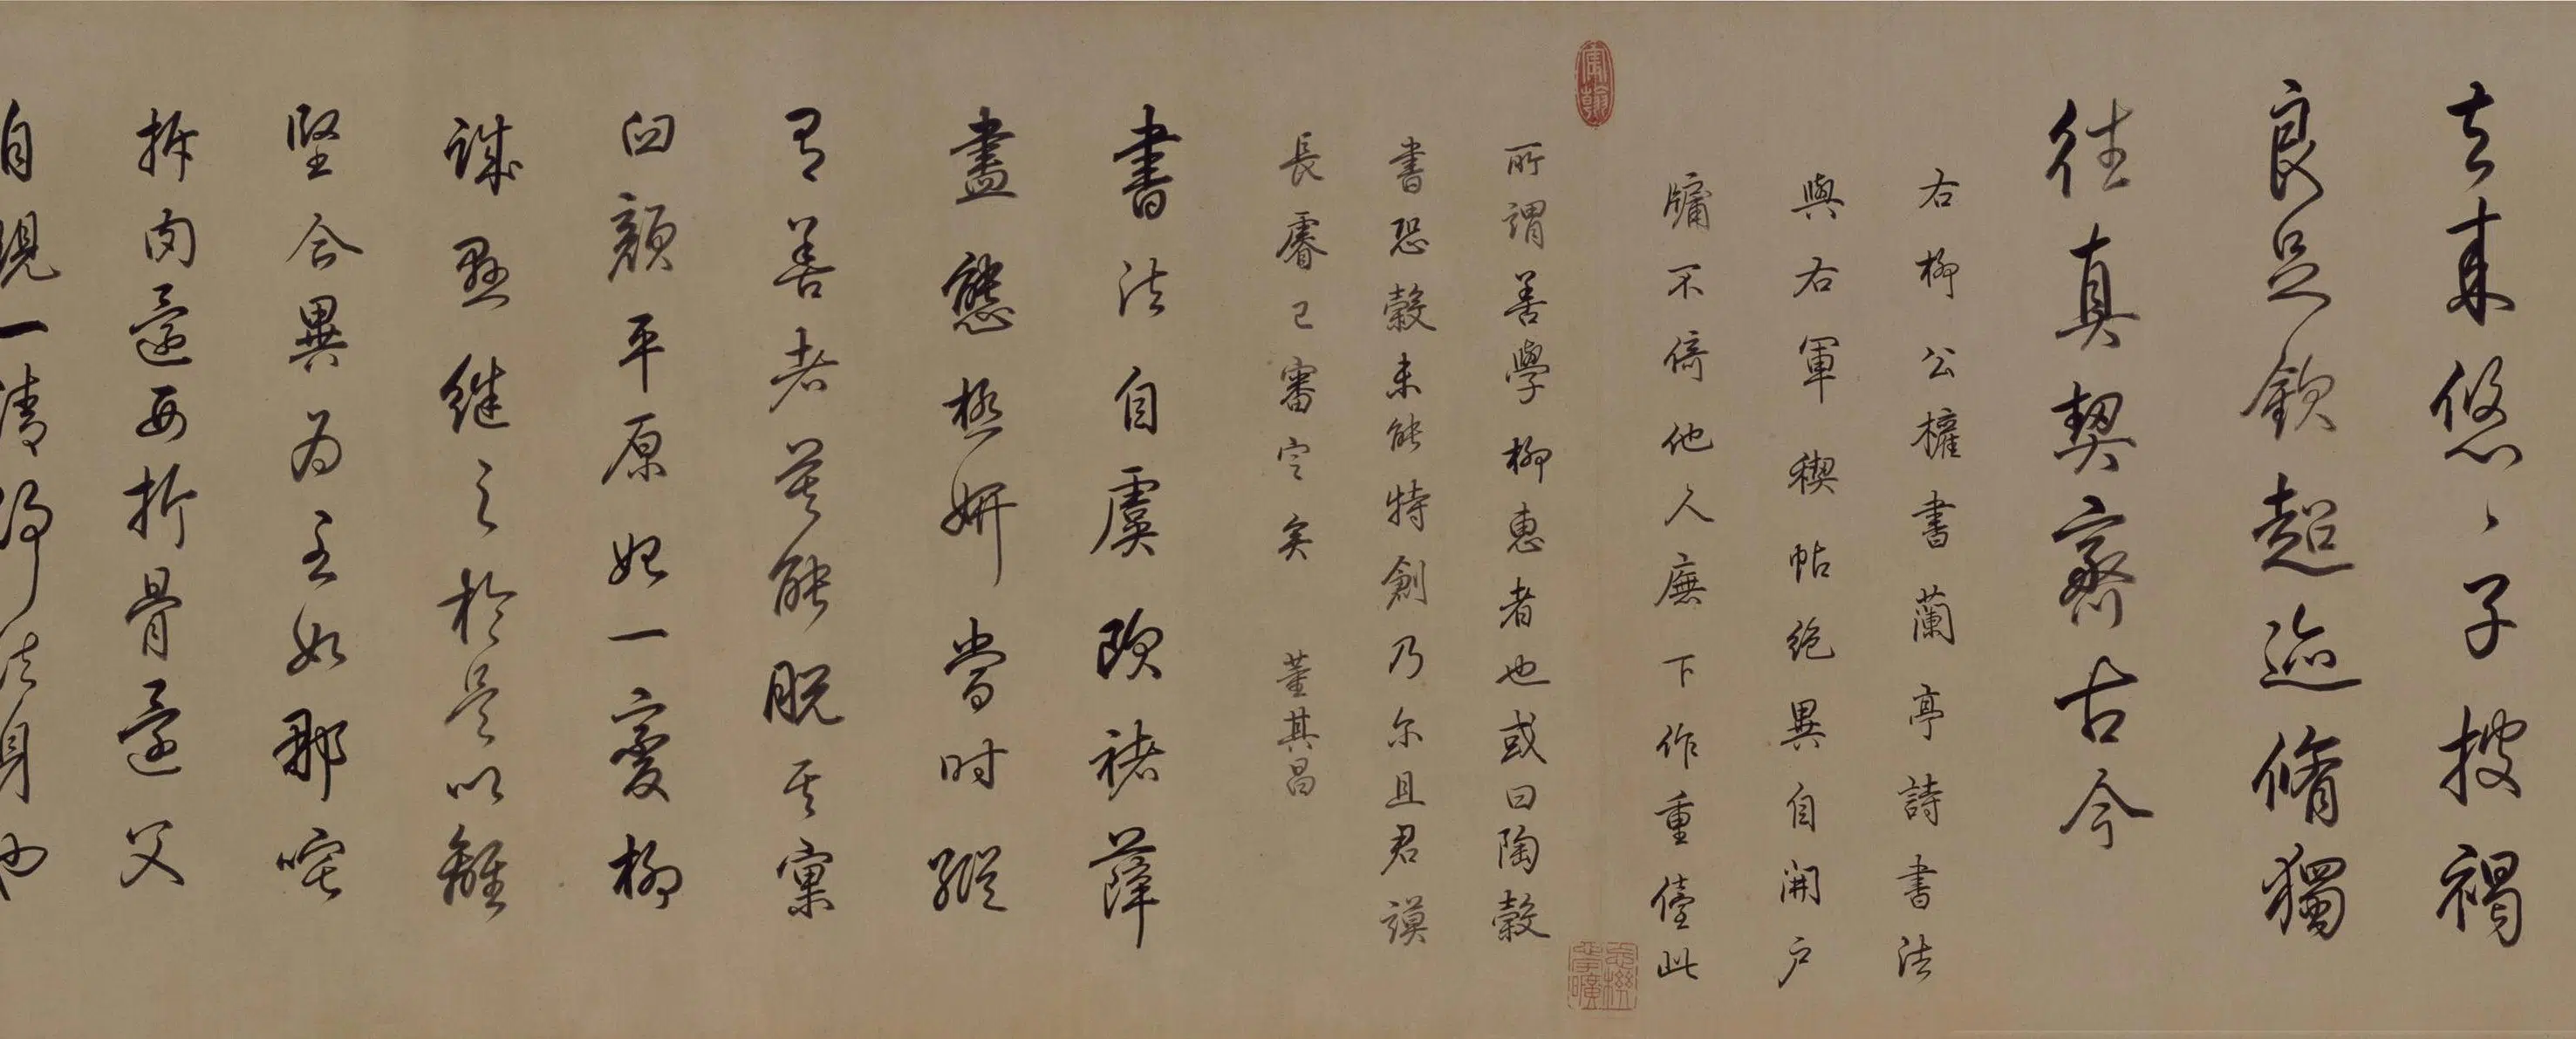 去來悠〻子披褐
良足欽超迹脩獨
往真契齊古今
右柳公權書蘭亭詩書法
與右軍禊帖絕異自開戶
牖不倚他人廡下作重儓此
所謂善學柳惠者也或曰陶穀
書恐穀未能特創乃尔且君謨
長睿已審定矣 董其昌
書法自虞歐褚薛
盡態極妍當时縱
有善者莫能脫其窠
臼顏平原始一變柳
誠懸繼之於是以離
堅合異為主如那吒
拆肉還母折骨還父
自現一清淨法身也